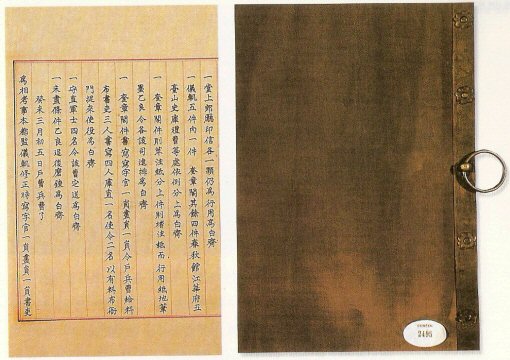 一堂上郎廳印信各一顆仍爲行用爲白齊
一儀軌五件內一件 奎章閣其餘四件春秋館江華府五
臺山史庫禮曹等處依例分上爲白齊
一 奎章閣件則草注紙分上件則楮注紙而行用紙地筆
墨乙良令各該司進排爲白齊
一 奎章閣件書寫寫字官一員畫員一員令戶兵曹給料
布書吏三人書寫四人庫直一名使令二名以有料布衙
門從來使役爲白齊
一守直軍士四名令該曹定送爲白齊
一未盡條件乙良追後磨鍊爲白齊
癸未三月初五日戶曹兵曹了
爲相考事本都監儀軌修正時寫字官一員畫員一員書吏
COREEN
2495